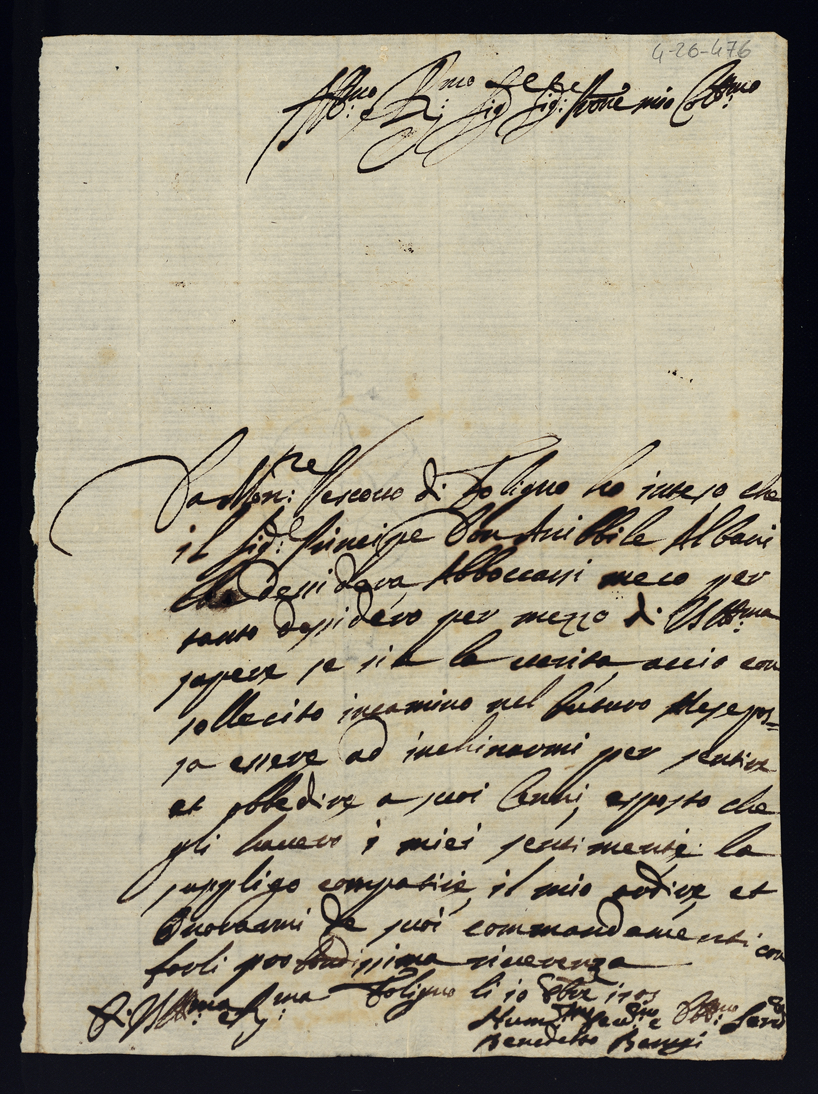 4-26-476
Ill:mo e R:mo Sig:re Sig:re Prone mio Coll:mo
Da Mon:re Vescovo di Foligno ho inteso che
il Sig: Principe Don Anibbile Albani
desidera Abboccarsi meco per
tanto desidero per mezzo di VS Ill:ma
sapere se sia la verità accio con
sollecito incamino nel futuro Mese pos=
sa essere ad inchinarmi per sentire
et obbedire a suoi Cenni, esposto che
gli havero i miei sentimenti la
suppligo compatire il mio ardire et
Onorarmi de suoi commandamenti con
farli profondissima riverenza
Di VS Ill:ma e R:ma Foligno li 10 8bre
Hum:mo Dev:mo e Obb:mo Serv
Benedetto